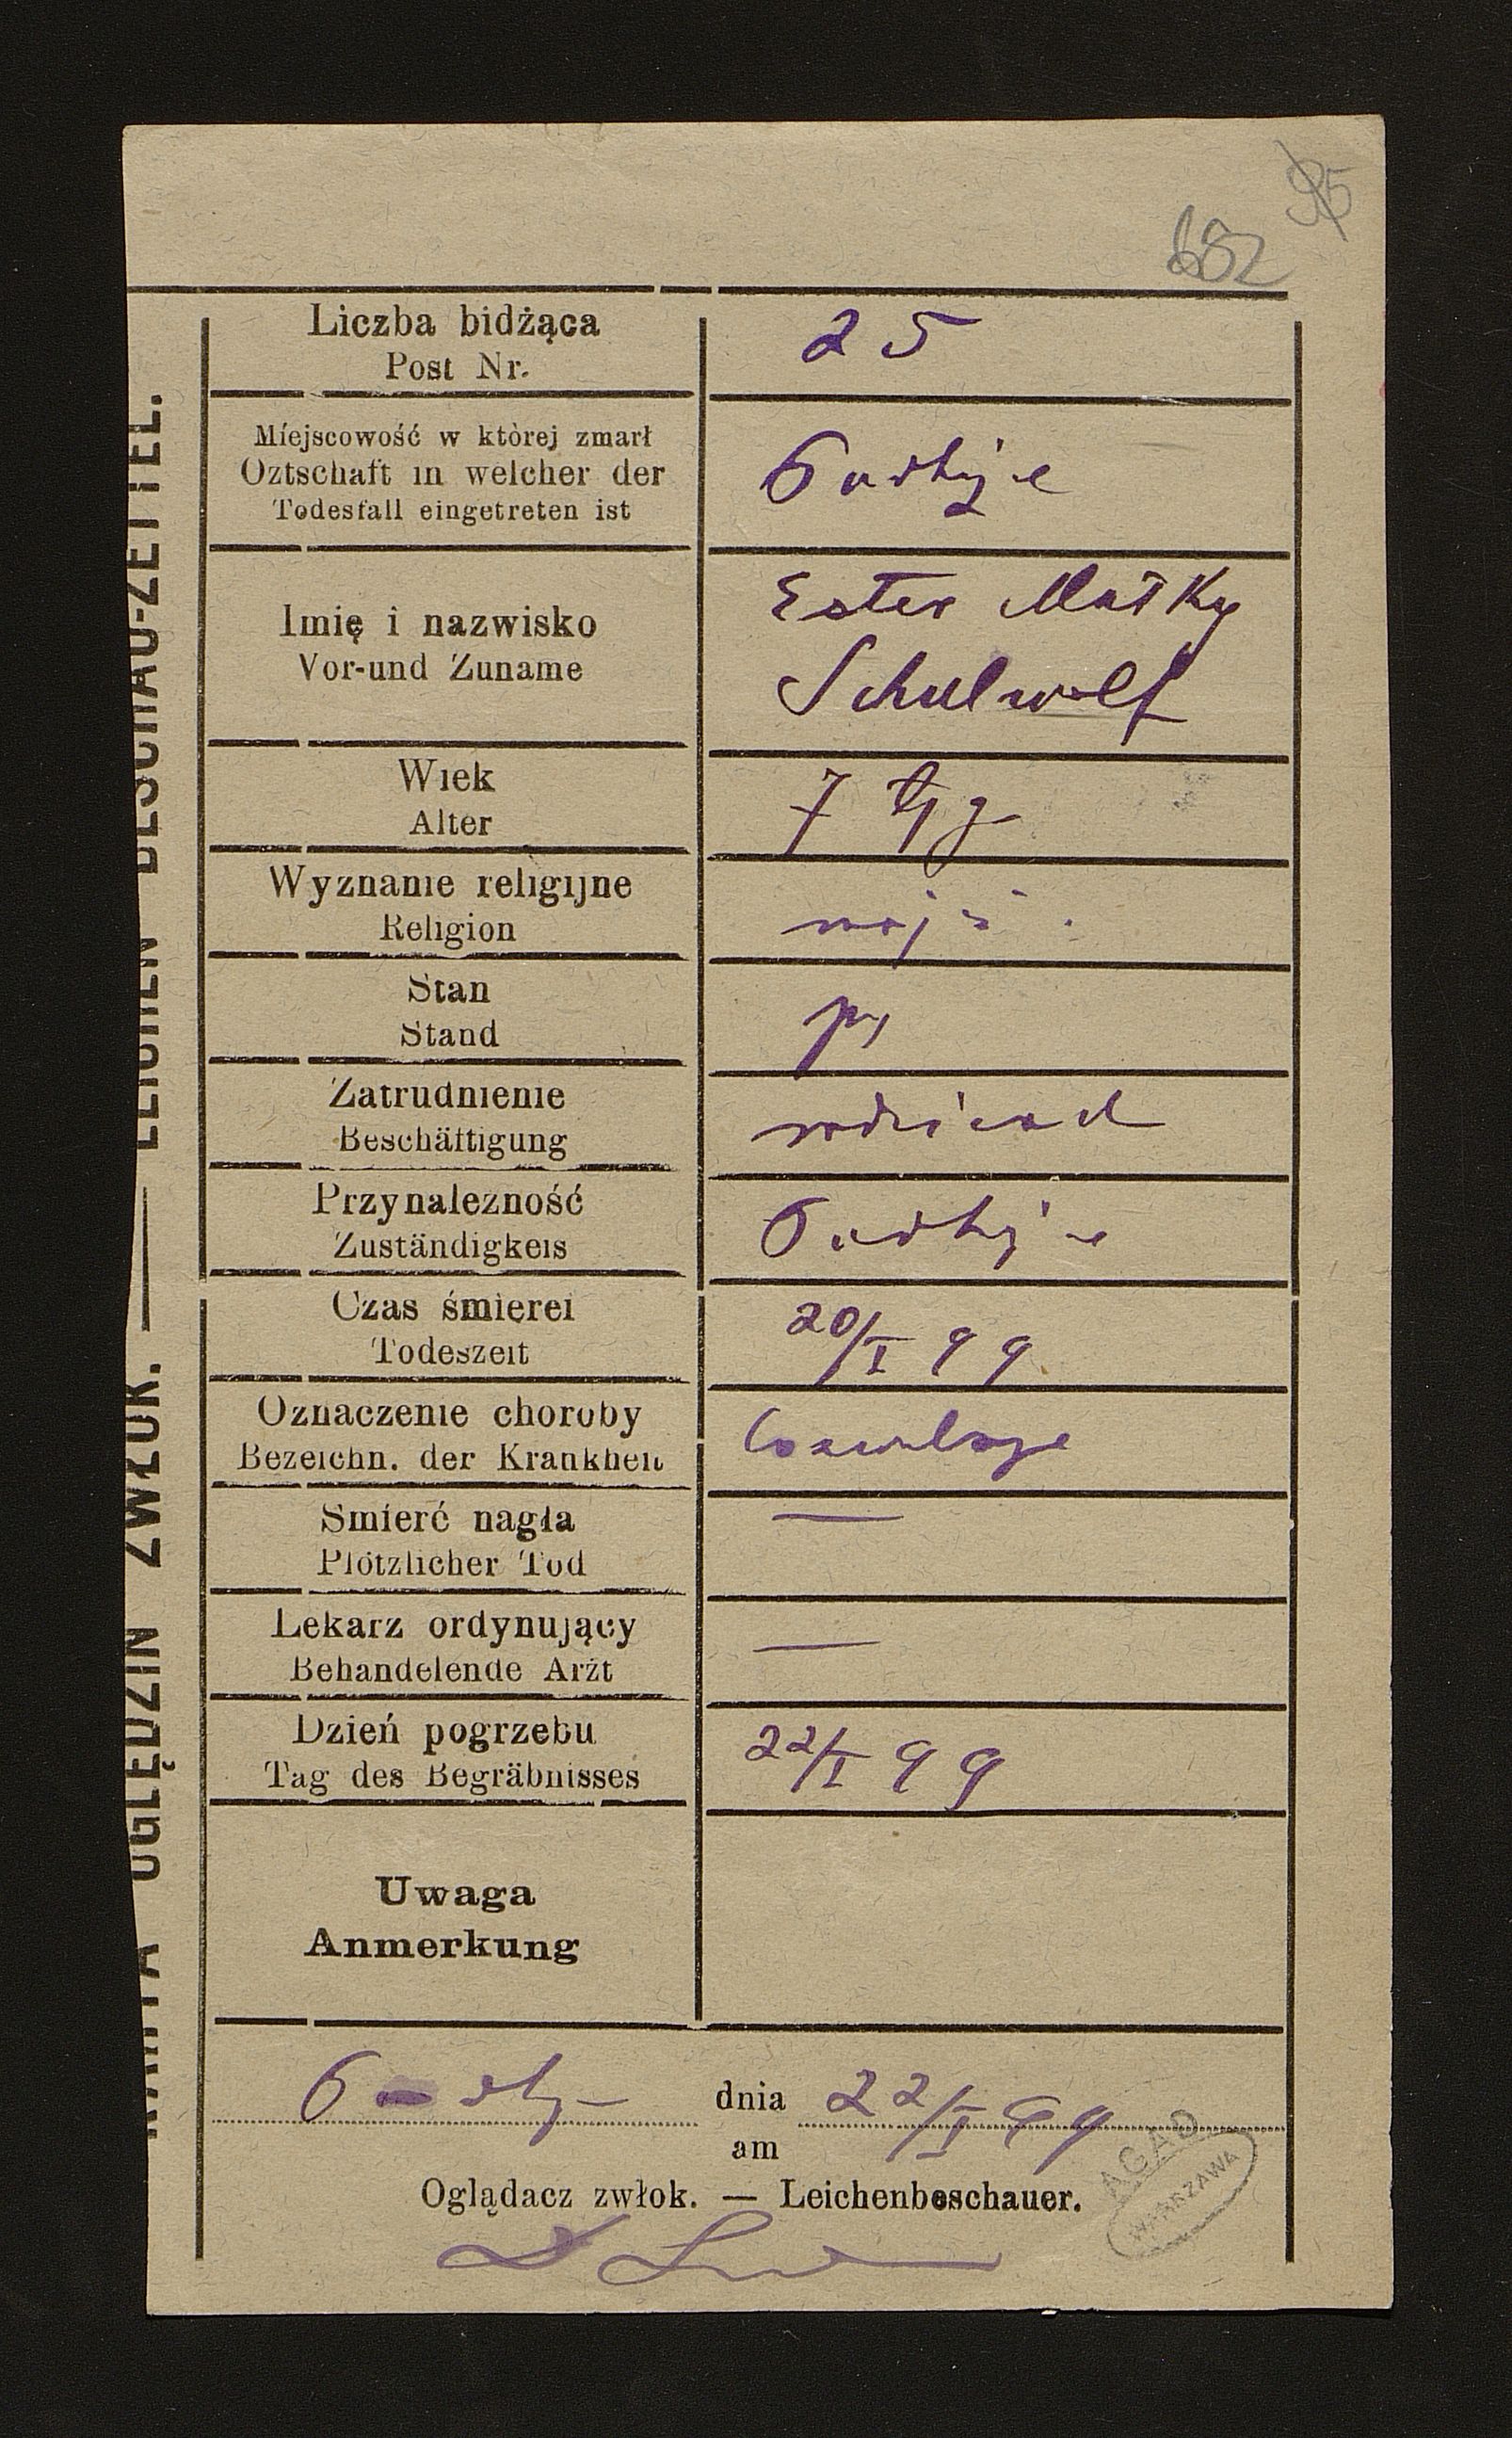 95
682
KARTA OGLĘDZIN ZWŁOK. — LEICHEN BESCHAU-ZETTEL.
Liczba bidżąca
Post Nr.
25
Miejscowość w której zmarł
Oztschaft in welcher der
Todesfall eingetreten ist
Imię i nazwisko
Vor-und Zuname
Ester
Schulwolf
Wiek
Alter
7 tyg
Wyznanie religijne
Religion
mojż.
Stan
Stand
Zatrudnienie
Beschäftigung
Przynalezność
Zuständigkeis
Czas śmierei
Todeszeit
20/I 99
Oznaczenie choroby
Bezeichn. der Krankheit
Smierć nagła
Plötzlicher Tod
—
Lekarz ordynujący
Behandelende Arżt
—
Dzień pogrzebu
Tag des Begräbnisses
22/I 99
Uwaga
Anmerkung
dnia 22/I 99
am
Oglądacz zwłok. — Leichenbeschauer.
AGAD
WARSZAWA